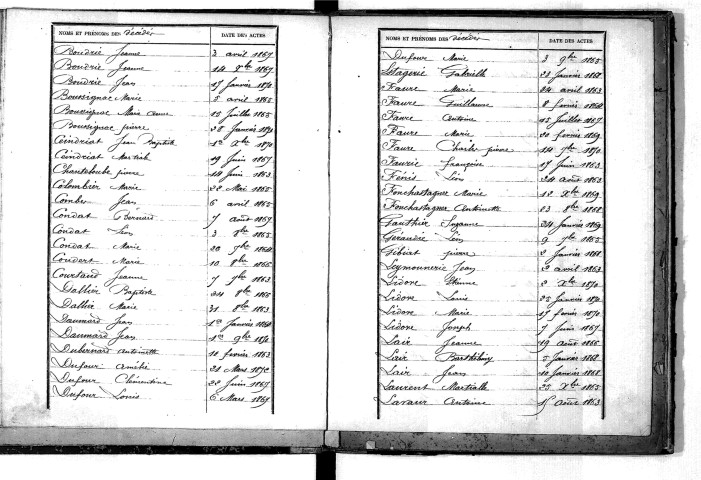 NOMS ET PRÉNOMS DES décédés DATE DES ACTES
Boudrie Jeanne 3 avril 1867
Boudrie Jeanne 14 8bre 1867
Boudrie Jean 17 janvier 1870
Boussignac Marie 5 avril 1865
Boussignac Marie Anne 15 Juillet 1865
Boussignac pierre 28 Janvier
Ceindriat Jean Baptiste 1er Xbre 1870
Ceindriat Martial 19 Juin 1867
Chanteloube pierre 14 Juin 1863
Colombier Marie 22 Mai 1865
Combe Jean 6 avril 1865
Condat Bernard 7 août 1867
Condat Léon 3 8bre 1865
Condat Marie 20 9bre 1864
Coudert Marie 10 8bre 1866
Courtaud Jeanne 7 9bre 1863
Dallier Baptiste 24 8bre 1866
Dallier Marie 31 8bre 1863
Daumard Jean 1er Janvier 1864
Daumard Jean 1er 9bre
Dubernard Antoinette 10 fevrier 1863
Dufour Amélie 21 Mars 1870
Dufour Clémentine 22 Juin 1867
Dufour Louis 6 Mars 1869
NOMS ET PRÉNOMS DES décédés DATE DES ACTES
Dufour Marie 3 9bre 1865
Gabrielle 23 Janvier 1868
Faure Marie 24 avril 1863
Faure Guillaume 8 fevrier 1864
Faure Antoine 15 Juillet 1867
Faure Marie 20 fevrier 1869
Faure Charles pierre 14 1870
Faurie Françoise 17 Juin 1863
Féris Léon 24 août 1863
Fonchastagner Marie 12 Xbre 1869
Fonchastagner Antoinette 23 8bre 1868
Gauthier Suzanne 24 Janvier 1869
Giraudie Léon 9 1865
Gibiat pierre 2 Janvier 1868
Leymonnerie Jean 2 avril 1863
Lidon Etienne 2 Xbre 1870
Lidon Louis 25 Janvier 1870
Lidon Marie 17 fevrier 1870
Lidon Joseph 7 Juin 1867
Lair Jeanne 19 août 1866
Lair Barthélémy 5 Janvier 1868
Lair Jean 10 Janvier 1868
Laurent Martialle 25 Xbre 1865
Lavaur Antoine 15 août 1863